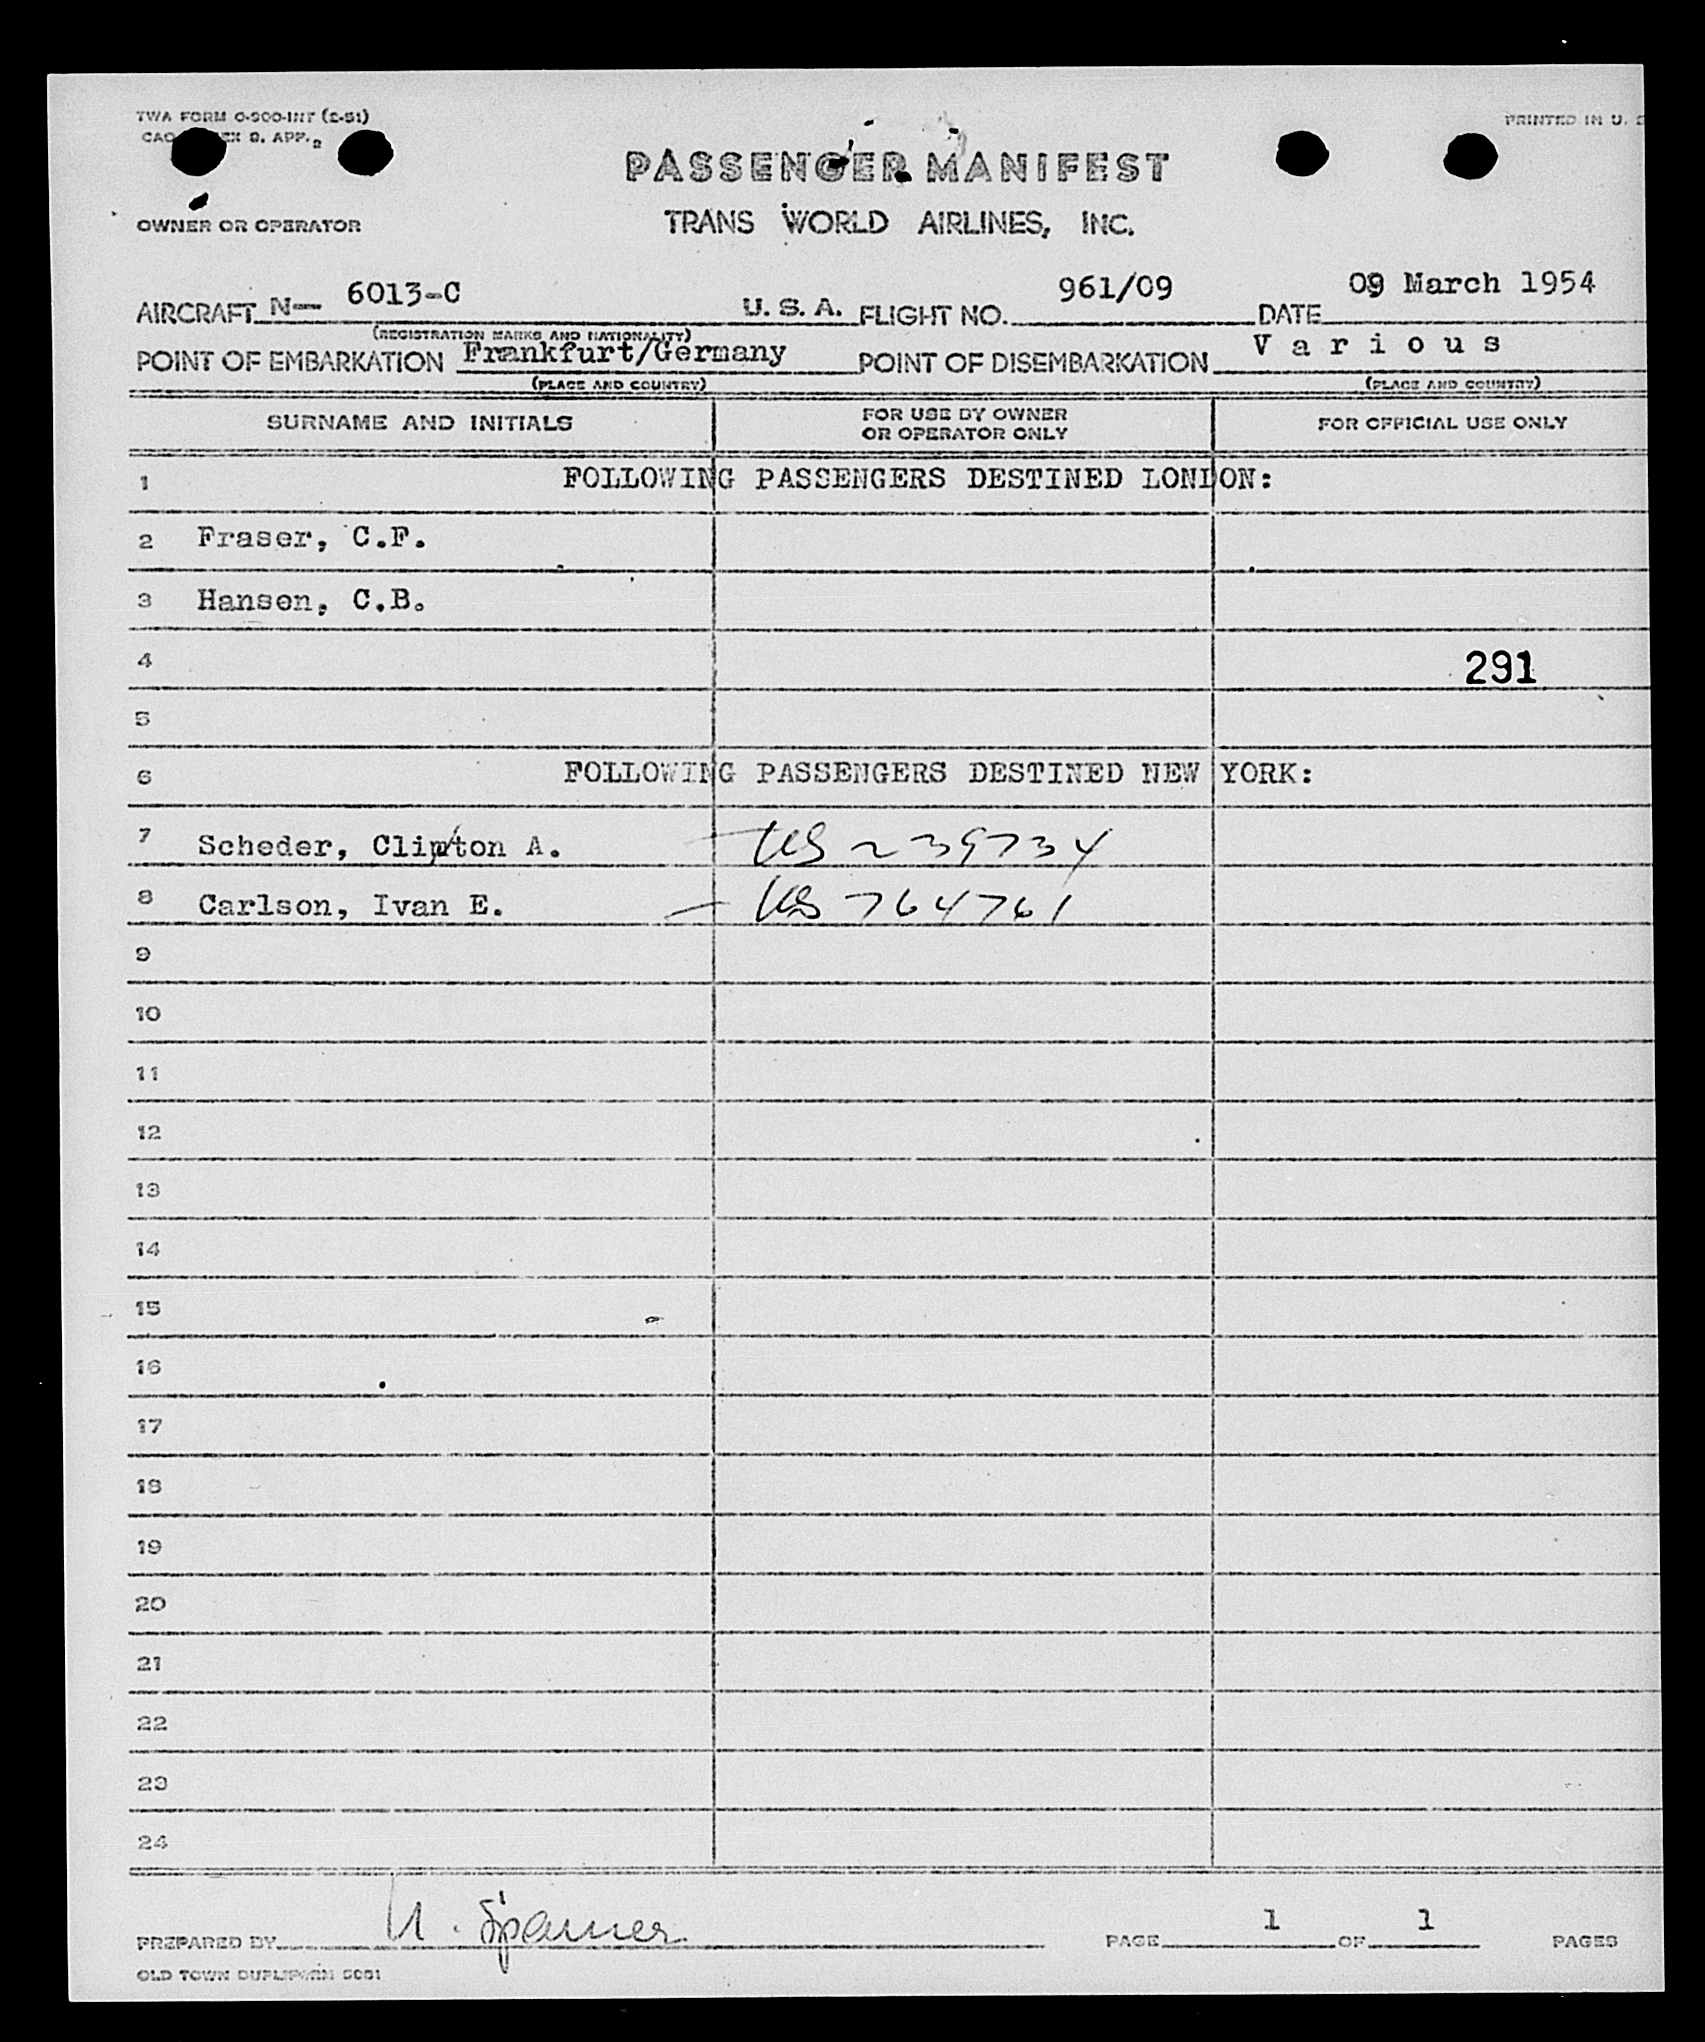 TWA FORM O-900-INT (2-51)
PRINTED IN U. S
PASSENGER MANIFEST
OWNER OR OPERATOR
TRANS WORLD AIRLINES, INC.
AIRCRAFT N— 6013-C U. S. A. FLIGHT NO. 961/09 DATE 09 March 1954
(REGISTRATION MARKS AND NATIONALITY)
POINT OF EMBARKATION Frankfurt/Germany POINT OF DISEMBARKATION Various
(PLACE AND COUNTRY) (PLACE AND COUNTRY)
SURNAME AND INITIALS FOR USE BY OWNER OR OPERATOR ONLY FOR OFFICIAL USE ONLY
1 FOLLOWING PASSENGERS DESTINED LONDON:
2 Fraser, C.F.
3 Hansen, C.B.
4 291
5
6 FOLLOWING PASSENGERS DESTINED NEW YORK:
7 Scheder, Clinton A. US 239734
8 Carlson, Ivan E. US 764761
9
10
11
12
13
14
15
16
17
18
19
20
21
22
23
24
PREPARED BY PAGE 1 OF 1 PAGES
OLD TOWN